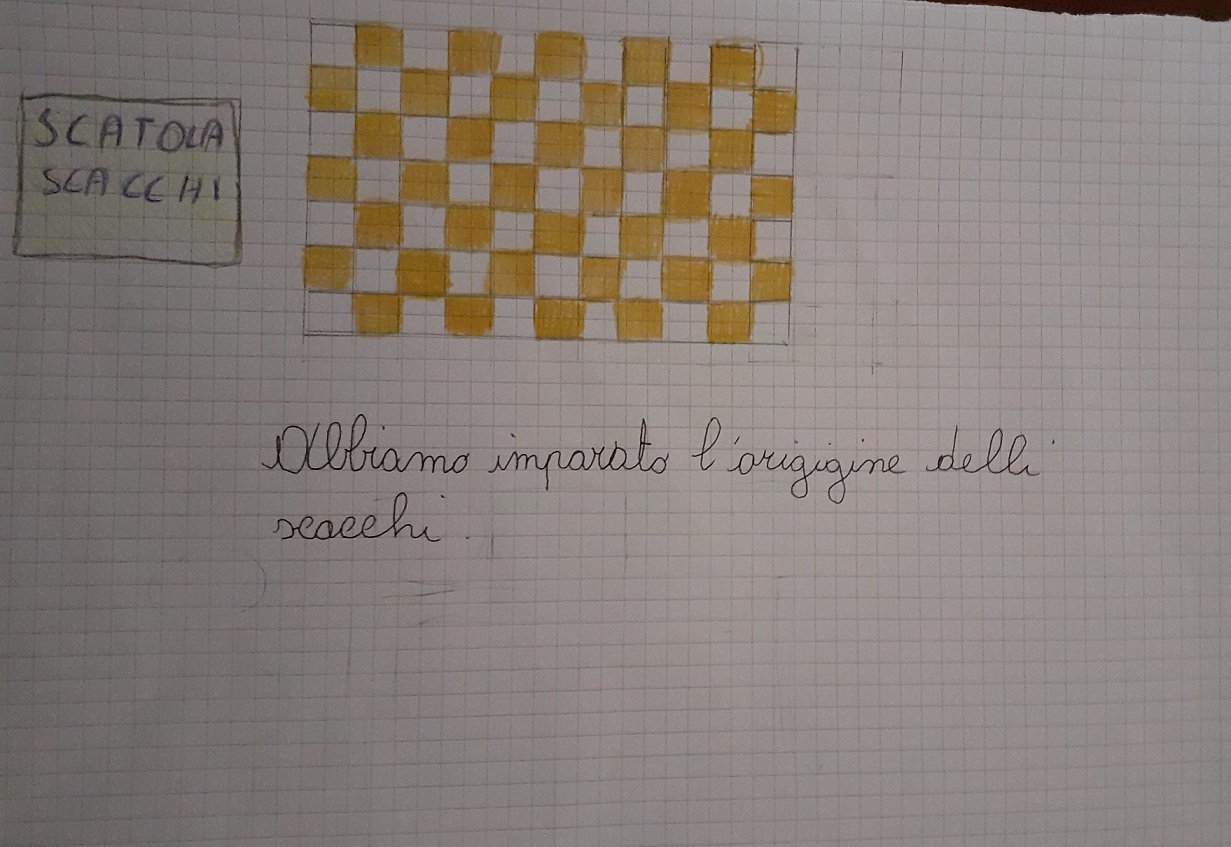 SCATOLA
SCACCHI
Abbiamo imparato l'origigine delli
scacchi.